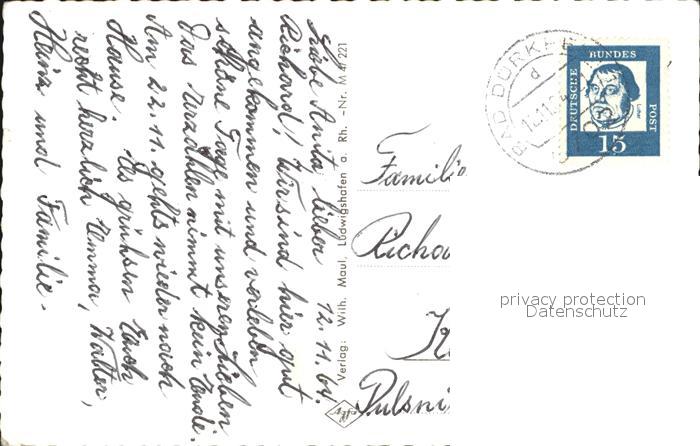 12.11.64.
Liebe Anita lieber
Richard! Wir sind hier gut
angekommen und verleben
schöne Tage mit unseren Lieben
Das Erzählen nimmt kein Ende.
Am 22.11. gehts wieder nach
Hause. Es grühsen Euch
recht herzlich Emma, Walter,
Heinz und Familie.
Verlag: Wilh. Maul, Ludwigshafen a. Rh. – Nr. M 4/221
Agfa
Famili
Richa
Pulsni
BAD DÜRKHE
d
DEUTSCHE
BUNDES
POST
Luther
15
privacy protection
Datenschutz